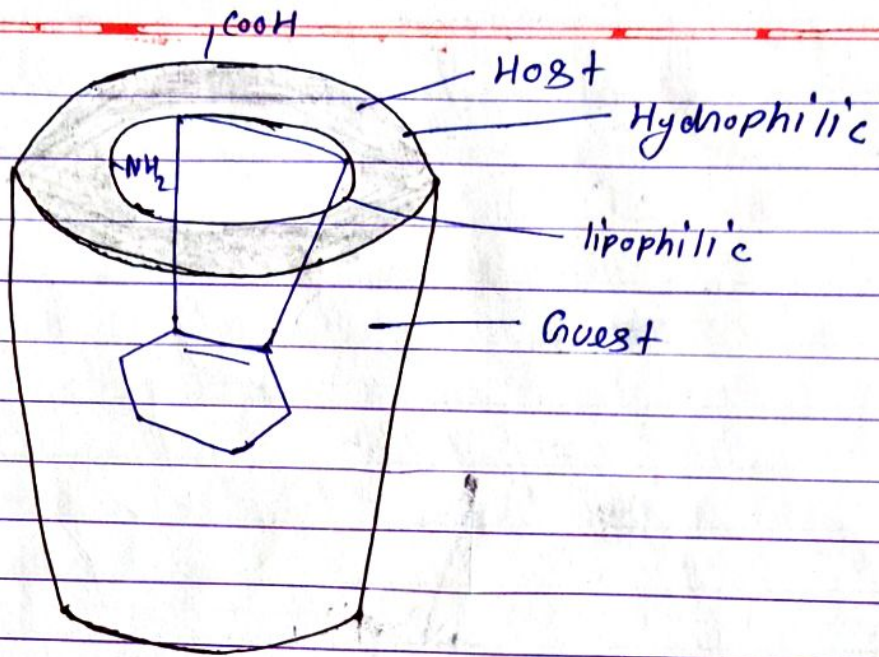 COOH
Host
Hydrophilic
NH₂
lipophilic
Guest